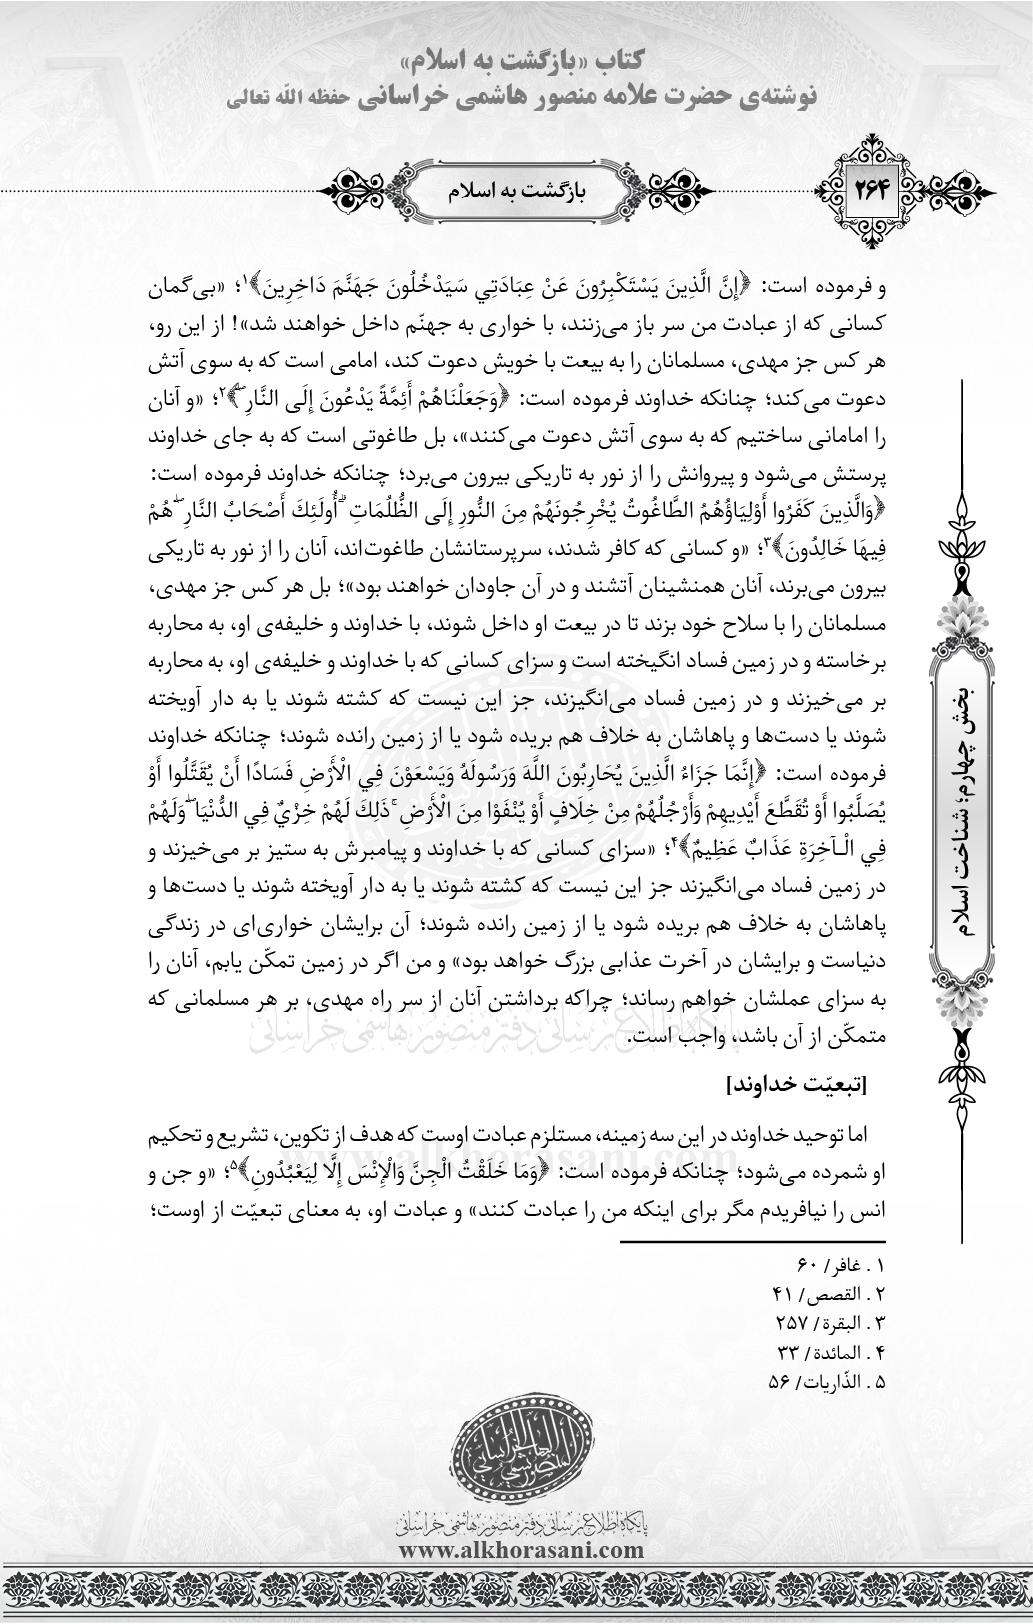 کتاب «بازگشت به اسلام»
نوشته‌ی حضرت علامه منصور هاشمی خراسانی حفظه اللّه تعالی
۲۶۴
بازگشت به اسلام
و فرموده است: ﴿إِنَّ الَّذِينَ يَسْتَكْبِرُونَ عَنْ عِبَادَتِي سَيَدْخُلُونَ جَهَنَّمَ دَاخِرِينَ﴾۱؛ «بی‌گمان
کسانی که از عبادت من سر باز می‌زنند، با خواری به جهنّم داخل خواهند شد»! از این رو،
هر کس جز مهدی، مسلمانان را به بیعت با خویش دعوت کند، امامی است که به سوی آتش
دعوت می‌کند؛ چنانکه خداوند فرموده است: ﴿وَجَعَلْنَاهُمْ أَئِمَّةً يَدْعُونَ إِلَى النَّارِ ۖ﴾۲؛ «و آنان
را امامانی ساختیم که به سوی آتش دعوت می‌کنند»، بل طاغوتی است که به جای خداوند
پرستش می‌شود و پیروانش را از نور به تاریکی بیرون می‌برد؛ چنانکه خداوند فرموده است:
﴿وَالَّذِينَ كَفَرُوا أَوْلِيَاؤُهُمُ الطَّاغُوتُ يُخْرِجُونَهُمْ مِنَ النُّورِ إِلَى الظُّلُمَاتِ ۗ أُولَئِكَ أَصْحَابُ النَّارِ ۖ هُمْ
فِيهَا خَالِدُونَ﴾۳؛ «و کسانی که کافر شدند، سرپرستانشان طاغوت‌اند، آنان را از نور به تاریکی
بیرون می‌برند، آنان همنشینان آتشند و در آن جاودان خواهند بود»؛ بل هر کس جز مهدی،
مسلمانان را با سلاح خود بزند تا در بیعت او داخل شوند، با خداوند و خلیفه‌ی او، به محاربه
برخاسته و در زمین فساد انگیخته است و سزای کسانی که با خداوند و خلیفه‌ی او، به محاربه
بر می‌خیزند و در زمین فساد می‌انگیزند، جز این نیست که کشته شوند یا به دار آویخته
شوند یا دست‌ها و پاهاشان به خلاف هم بریده شود یا از زمین رانده شوند؛ چنانکه خداوند
فرموده است: ﴿إِنَّمَا جَزَاءُ الَّذِينَ يُحَارِبُونَ اللَّهَ وَرَسُولَهُ وَيَسْعَوْنَ فِي الْأَرْضِ فَسَادًا أَنْ يُقَتَّلُوا أَوْ
يُصَلَّبُوا أَوْ تُقَطَّعَ أَيْدِيهِمْ وَأَرْجُلُهُمْ مِنْ خِلَافٍ أَوْ يُنْفَوْا مِنَ الْأَرْضِ ۚ ذَلِكَ لَهُمْ خِزْيٌ فِي الدُّنْيَا ۖ وَلَهُمْ
فِي الْآخِرَةِ عَذَابٌ عَظِيمٌ﴾۴؛ «سزای کسانی که با خداوند و پیامبرش به ستیز بر می‌خیزند و
در زمین فساد می‌انگیزند جز این نیست که کشته شوند یا به دار آویخته شوند یا دست‌ها و
پاهاشان به خلاف هم بریده شود یا از زمین رانده شوند؛ آن برایشان خواری‌ای در زندگی
دنیاست و برایشان در آخرت عذابی بزرگ خواهد بود» و من اگر در زمین تمکّن یابم، آنان را
به سزای عملشان خواهم رساند؛ چراکه برداشتن آنان از سر راه مهدی، بر هر مسلمانی که
متمکّن از آن باشد، واجب است.
[تبعیّت خداوند]
اما توحید خداوند در این سه زمینه، مستلزم عبادت اوست که هدف از تکوین، تشریع و تحکیم
او شمرده می‌شود؛ چنانکه فرموده است: ﴿وَمَا خَلَقْتُ الْجِنَّ وَالْإِنْسَ إِلَّا لِيَعْبُدُونِ﴾۵؛ «و جن و
انس را نیافریدم مگر برای اینکه من را عبادت کنند» و عبادت او، به معنای تبعیّت از اوست؛
۱ . غافر/ ۶۰
۲ . القصص/ ۴۱
۳ . البقرة/ ۲۵۷
۴ . المائدة/ ۳۳
۵ . الذّاریات/ ۵۶
بخش چهارم؛ شناخت اسلام
المنصور الهاشمي الخراساني
پایگاه اطلاع‌رسانی دفتر منصور هاشمی خراسانی
www.alkhorasani.com